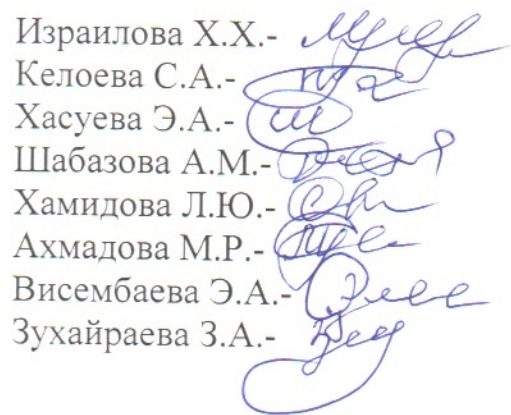 Израилова Х.Х.-
Келоева С.А.-
Хасуева Э.А.-
Шабазова А.М.-
Хамидова Л.Ю.-
Ахмадова М.Р.-
Висембаева Э.А.-
Зухайраева З.А.-